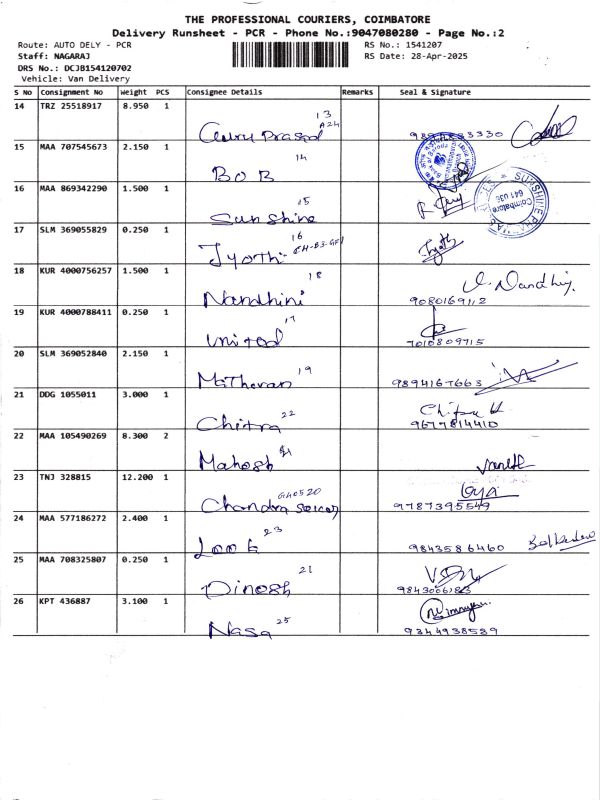 THE PROFESSIONAL COURIERS, COIMBATORE
Delivery Runsheet - PCR - Phone No.:9047080280 - Page No.:2
Route: AUTO DELY - PCR RS No.: 1541207
Staff: NAGARAJ RS Date: 28-Apr-2025
DRS No.: DCJB154120702
Vehicle: Van Delivery
S No Consignment No Weight PCS Consignee Details Remarks Seal & Signature
14 TRZ 25518917 8.950 1 13
A24
15 MAA 707545673 2.150 1 14
BOB
16 MAA 869342290 1.500 1 15
Sunshine SUNSHINE Coimbatore 641 036
17 SLM 369055829 0.250 1 16
Jyothi Jyothi
18 KUR 4000756257 1.500 1 18
Nandhini Nandhini
9080169112
19 KUR 4000788411 0.250 1 17
United 7010809715
20 SLM 369052840 2.150 1 19
9894167663
21 DDG 1055011 3.000 1 22
Chitra 9677814410
22 MAA 105490269 8.300 2
Mahesh
23 TNJ 328815 12.200 1
Chandra 9787395549
24 MAA 577186272 2.400 1 23
Look 9843586460
25 MAA 708325807 0.250 1 21
Dinesh
26 KPT 436887 3.100 1 25
Nasa 9344938539